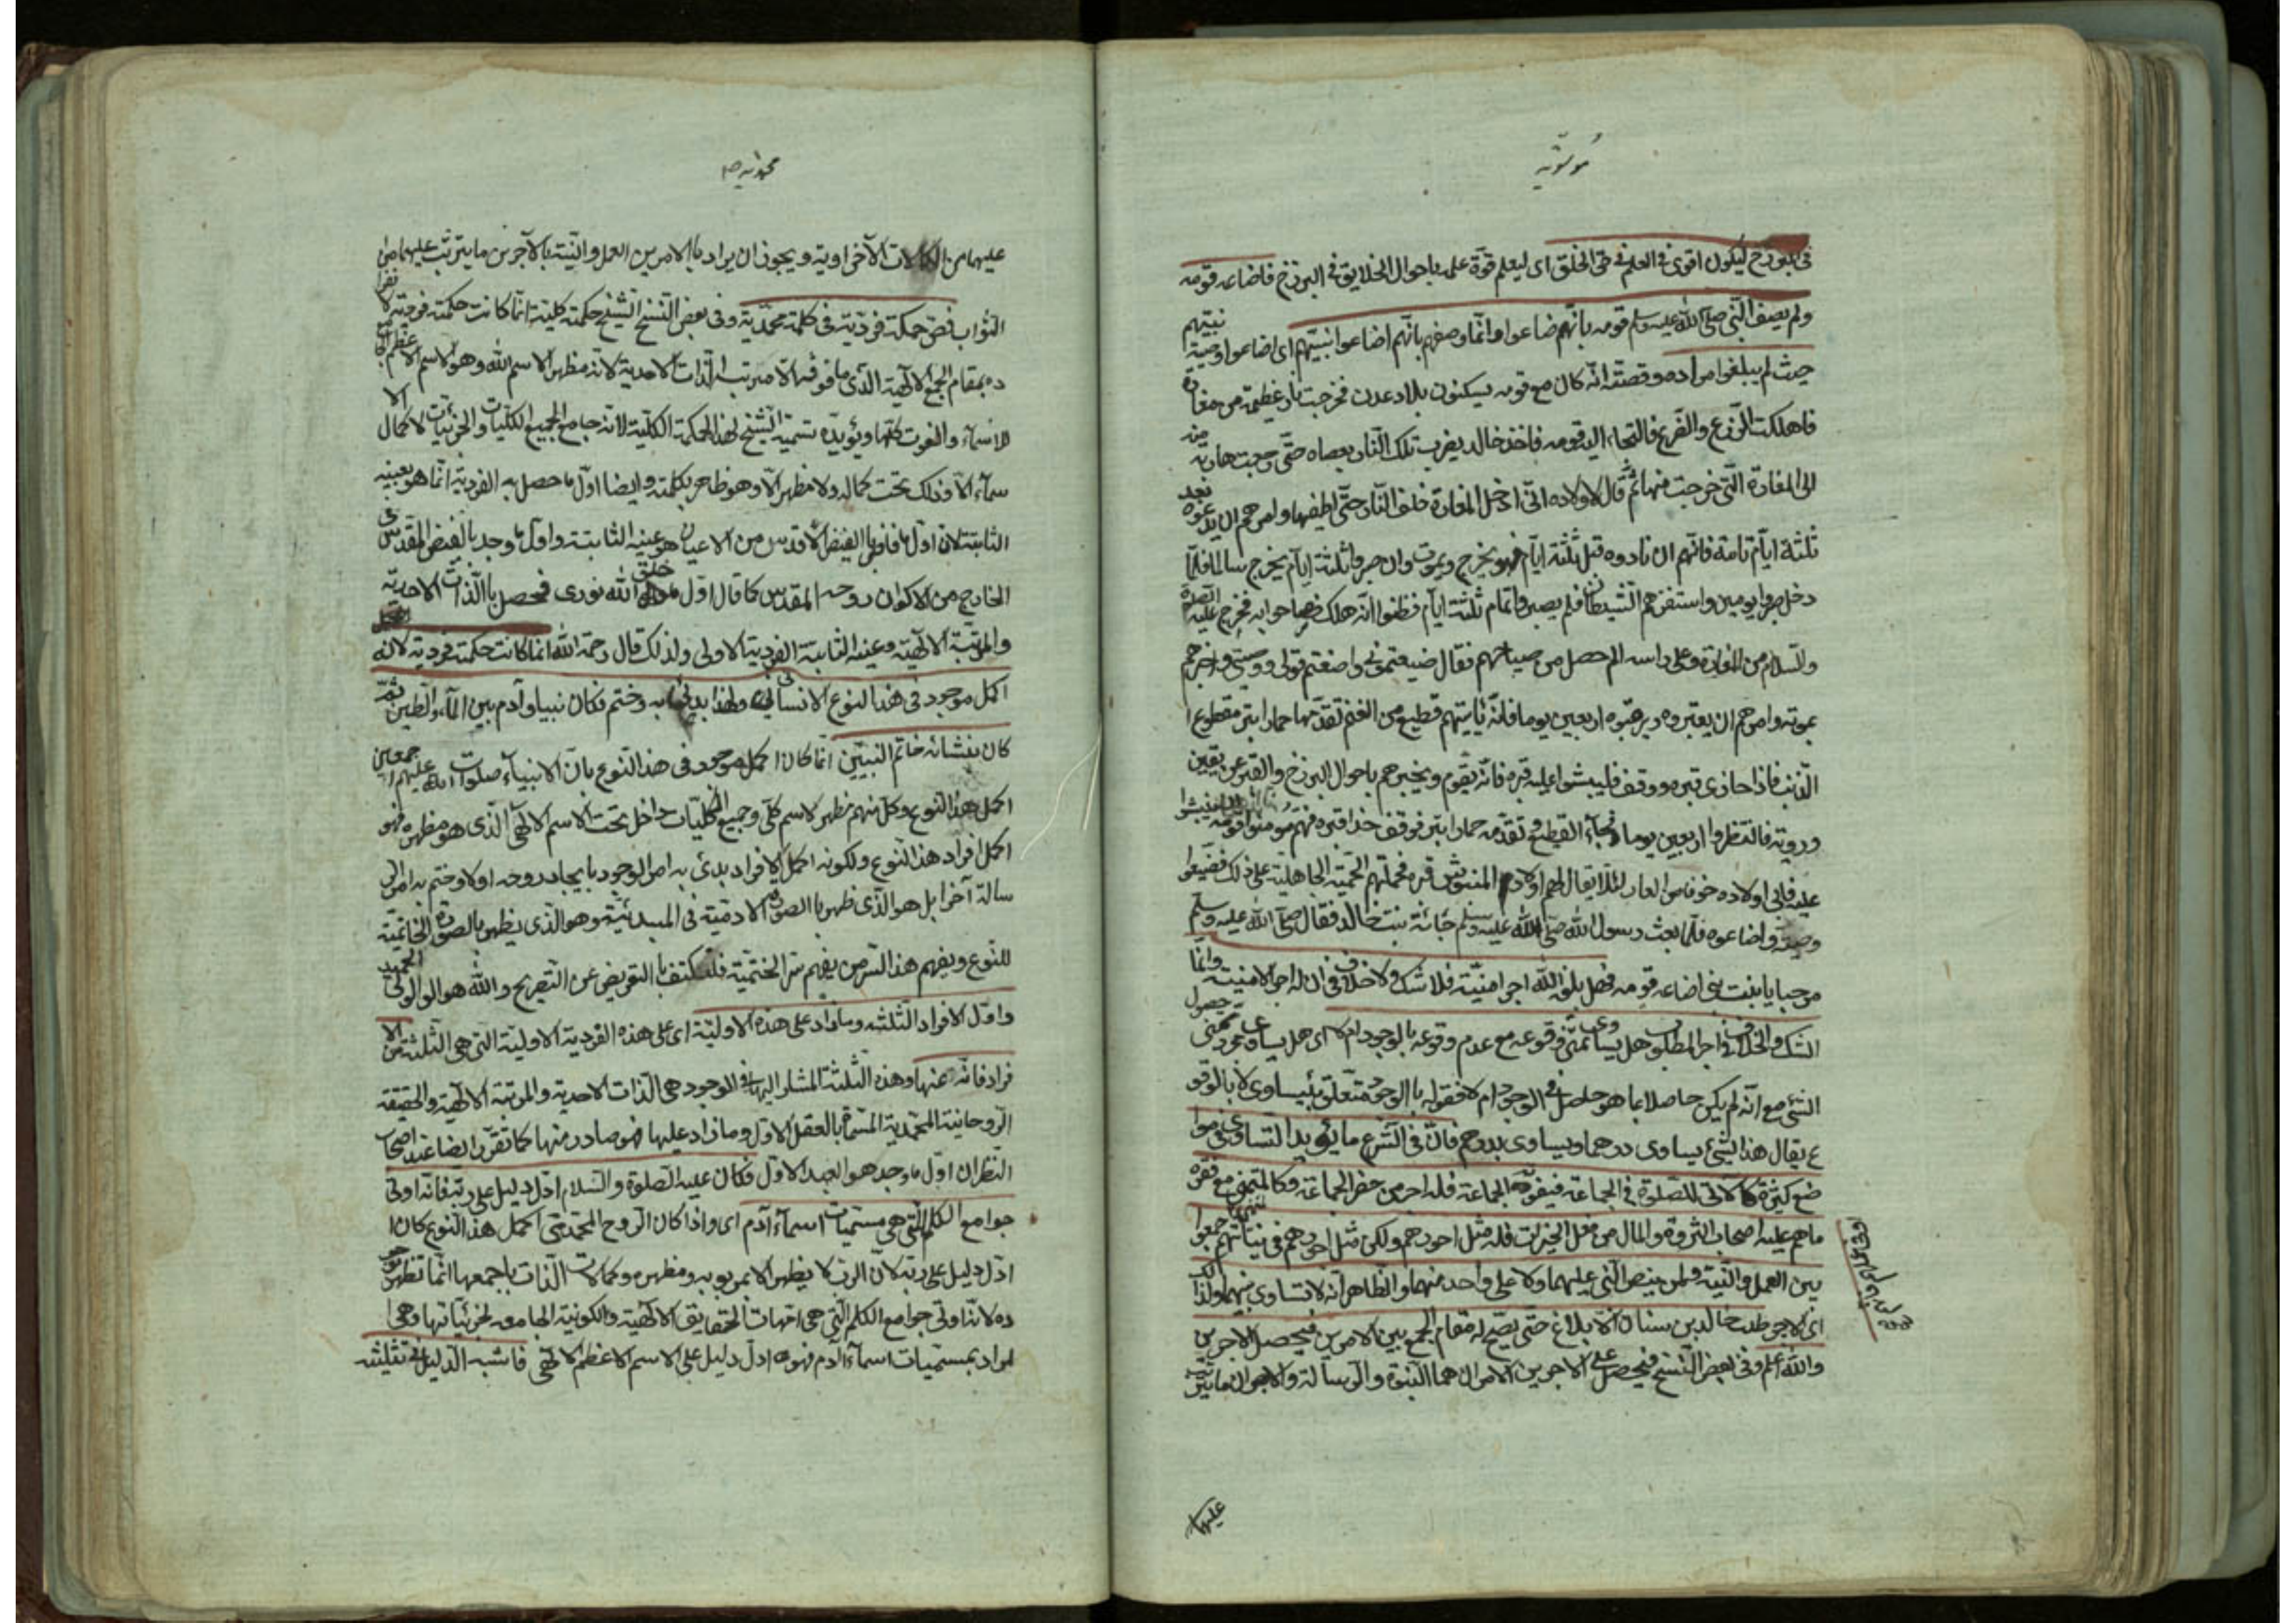 في البرزخ ليكون اقوى في العلم في حق الخلق اى ليعلم قوة علمه باحوال الخلايق في البرزخ فاضاعه قومه
ولم يصف النبي صلى الله عليه وسلم قومه بانهم ضاعوا وانما وصفهم بانهم اضاعوا نبيهم اى اضاعوا وصية نبيهم
حيث لم يبلغوا مراده وقصته انه كان مع قومه يسكنون بلاد عدن فخرجت نار عظيمة من مغارة
فاهلكت الزرع والضرع فالتجاء اليه قومه فاخذ خالد يضرب تلك النار بعصاه حتى رجعت هاربة منه
الى المغارة التي خرجت منها ثم قال لاولاده اني ادخل المغارة خلف النار حتى اطفيها وامرهم ان يدعوه بعد
ثلثة ايام تامة فانهم ان نادوه قبل ثلثة ايام فهو يخرج ويموت وان صبروا ثلثة ايام يخرج سالما فلما
دخل صبروا يومين واستفزهم الشيطان فلم يصبروا تمام ثلثة ايام فظنوا انه هلك فصاحوا به فخرج عليه الصلوة
والسلام من المغارة وعلى راسه الم حصل من صياحهم فقال ضيعتموني واضعتم قولي ووصيتي واخبرهم
بموته وامرهم ان يقبروه ويرقبوه اربعين يوما فانه ياتيهم قطيع من الغنم تقدمها حمار ابتر مقطوع ا
الذنب فاذا حاذى قبره ووقف فلينبشوا عليه قبره فانه يقوم ويخبرهم باحوال البرزخ والقبر عن يقين
وروية فانتظروا اربعين يوما فجاء القطيع وتقدمه حمار ابتر فوقف حذا قبره فهم مومنوا قومه ان ينبشوا
عليه فابى اولاده خوفا من العار لئلا يقال لهم اولاد المنبوش قبره فحملتهم الحمية الجاهلية على ذلك فضيعوا
وصيته واضاعوه فلما بعث رسول الله صلى الله عليه وسلم جائته بنت خالد فقال صلى الله عليه وسلم
مرحبا يابنت نبي اضاعه قومه فهل بلغه الله اجر امنيته فلا شك ولا خلاف في ان له اجر الامنية وانما
الشك والخلاف في اجر المطلوب هل يساوى تمني وقوعه مع عدم وقوعه بالوجود ام لا اى هل يساوى مجرد تمني حصول
الشئ مع انه لم يكن حاصلا بما هو حاصل في الوجود ام لا فقوله بالوجود متعلق بيساوى لا بالوقو
ع يقال هذا الشئ يساوى درهما ويساوى بدرهم فان في الشرع ما يؤيد التساوى في موا
ضع كثيرة كالاتي للصلوة في الجماعة فيفوته الجماعة فله اجر من حضر الجماعة وكالمتمني مع فقره
ماهم عليه اصحاب الثروة والمال من فعل الخيرات فله مثل اجورهم ولكن مثل اجورهم في نياتهم جمعوا
بين العمل والنية ولم ينص النبي عليهما ولا على واحد منهما والظاهر انه لا تساوى بينهما ولذلك
اى لاجر طلب خالد بن سنان الابلاغ حتى يصح له مقام الجمع بين الامرين فيحصل الاجرين
والله اعلم وفي بعض النسخ فيحصل على الاجرين الامران هما النبوة والرسالة والاجران ما يترتب
عليهما
عليهما من الكمالات الاخراوية ويجوز ان يراد بالامرين العمل والنية بالاجرين ما يترتب عليهما من
الثواب فص حكمة فردية في كلمة محمدية وفي بعض النسخ الشيخ حكمة كلية انما كانت حكمته فردية لانفرا
ده بمقام الجمع الالهية الذي ما فوقه الا مرتبة الذات الاحدية لانه مظهر الاسم الله وهو الاسم الاعظم الجامع
للاسماء والنعوت كلها ويؤيده تسمية الشيخ لهذا الحكمة الكلية لانه جامع لجميع الكليات والجزئيات لا كمال الا
سماء الا وذلك تحت كماله ولا مظهر الا وهو ظاهر بكلمته وايضا اول ما حصل به الفردية انما هو بعينه
الثابتة لان اول ما فاض بالفيض الاقدس من الاعيان هو عينه الثابتة واول ما وجد بالفيض المقدس في
الخارج من الاكوان روحه المقدس كما قال اول ما خلق الله نورى فحصل بالذات الاحدية
والمرتبة الالهية وعينه الثابتة الفردية الاولى ولذلك قال رحمة الله انما كانت حكمته فردية لانه
اكمل موجود في هذا النوع الانساني ولهذا بدئ به وختم فكان نبيا وآدم بين الماء والطين ثم
كان بنشاته خاتم النبيين انما كان اكمل موجود في هذا النوع بان الانبياء صلوات الله عليهم اجمعين
اكمل هذا النوع وكل منهم مظهر لاسم كلي وجميع الكليات داخل تحت الاسم الالهي الذي هو مظهره فهو
اكمل افراد هذا النوع ولكونه اكمل الافراد بدئ به امر الوجود بايجاد روحه اولا وختم به امر الر
سالة آخرا بل هو الذي ظهر بالصورة الادمية في المبدئية وهو الذي يظهر بالصورة الخاتمية
للنوع ويفهم هذا السر من يفهم سر الختمية فلنكتف بالتعريض عن التصريح والله هو الولي الحميد
واول الافراد الثلثة وما زاد على هذه الاولية اى على هذه الفردية الاولية التي هي الثلثة من الا
فراد فانه عنها وهذه الثلثة المشار اليها في الوجود هي الذات الاحدية والمرتبة الالهية والحقيقة
الروحانية المحمدية المسماة بالعقل الاول وما زاد عليها فهو صادر منها كما تقرر ايضا عند اصحاب
النظر ان اول ما وجد هو العقل الاول فكان عليه الصلوة والسلام ادل دليل على ربه فانه اوتي
جوامع الكلم التي هي مسميات اسماء آدم اى واذا كان الروح المحمدي اكمل هذا النوع كان ا
ادل دليل على ربه لان الرب لا يظهر الا بمربوبه ومظهره وكمالات الذات باجمعها انما تظهر بوجو
ده لانه اوتي جوامع الكلم التي هي امهات الحقايق الالهية والكونية الجامعة لجزئياتها وهي ا
لمراد بمسميات اسماء آدم فهو ادل دليل على الاسم الاعظم الالهي فاشبه الدليل في تثليثه